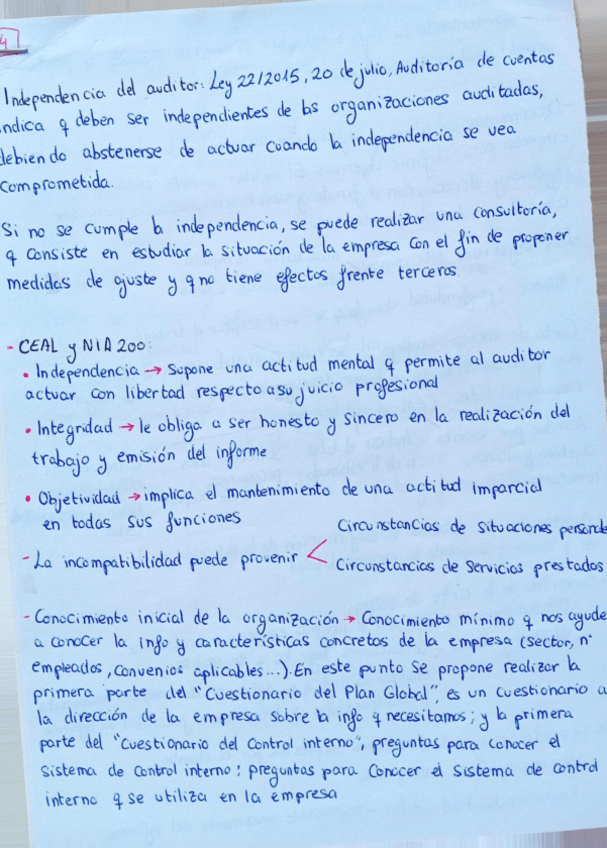 4
Independencia del auditor: Ley 22/2015, 20 de julio, Auditoría de cuentas
indica q deben ser independientes de las organizaciones auditadas,
debiendo abstenerse de actuar cuando la independencia se vea
comprometida.
Si no se cumple la independencia, se puede realizar una consultoría,
q consiste en estudiar la situación de la empresa con el fin de proponer
medidas de ajuste y q no tiene efectos frente terceros
- CEAL y NIA 200:
• Independencia → Supone una actitud mental q permite al auditor
actuar con libertad respecto a su juicio profesional
• Integridad → le obliga a ser honesto y sincero en la realización del
trabajo y emisión del informe
• Objetividad → implica el mantenimiento de una actitud imparcial
en todas sus funciones
Circunstancias de situaciones personale
- La incompatibilidad puede provenir <
Circunstancias de Servicios prestados
- Conocimiento inicial de la organización → Conocimiento mínimo q nos ayude
a conocer la info y características concretas de la empresa (sector, nº
empleados, convenios aplicables...). En este punto se propone realizar la
primera parte del "Cuestionario del Plan Global", es un cuestionario a
la dirección de la empresa sobre la info q necesitamos; y la primera
parte del "Cuestionario del Control interno", preguntas para conocer el
Sistema de control interno: preguntas para conocer el sistema de control
interno q se utiliza en la empresa